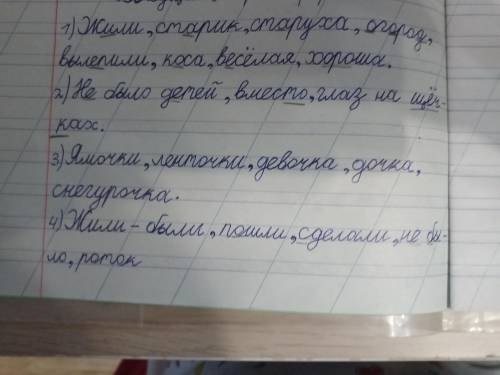 1) Жили, старик, старуха, огород,
вылепили, коса, весёлая, хороша.
2) Не было детей, вместо, глаз на щёч-
ках.
3) Ямочки, ленточки, девочка, дочка,
снегурочка.
4) Жили - были, пошли, сделали, не бы-
ло, роток